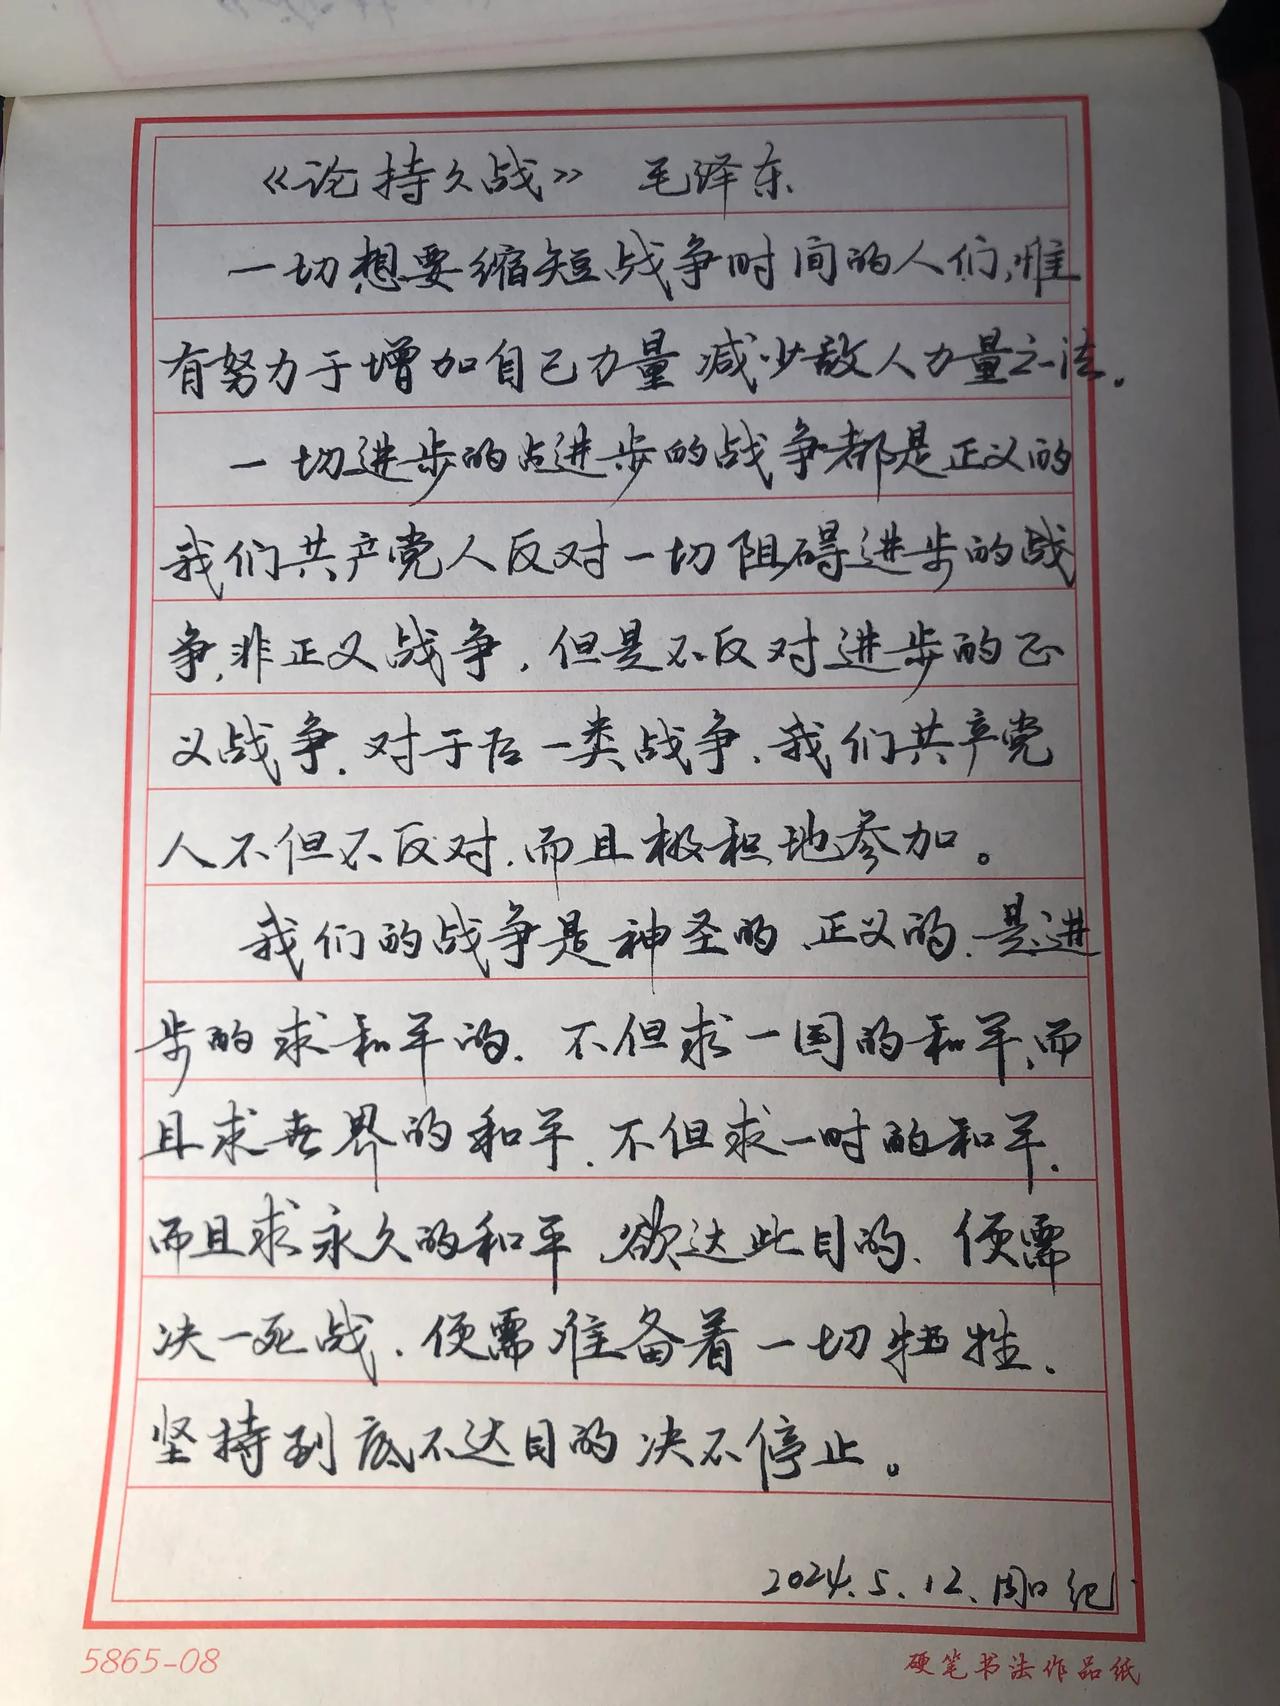 《论持久战》 毛泽东
一切想要缩短战争时间的人们,惟
有努力于增加自己力量 减少敌人力量之一法。
一切进步的战争都是正义的
我们共产党人反对一切阻碍进步的战
争,非正义战争,但是不反对进步的正
义战争.对于后一类战争、我们共产党
人不但不反对.而且极积地参加。
我们的战争是神圣的、正义的.是进
步的求和平的.不但求一国的和平,而
且求世界的和平.不但求一时的和平.
而且求永久的和平、欲达此目的、便需
决一死战.便需准备着一切牺牲.
坚持到底不达目的决不停止。
2024.5.12.周口纪
5865-08
硬笔书法作品纸